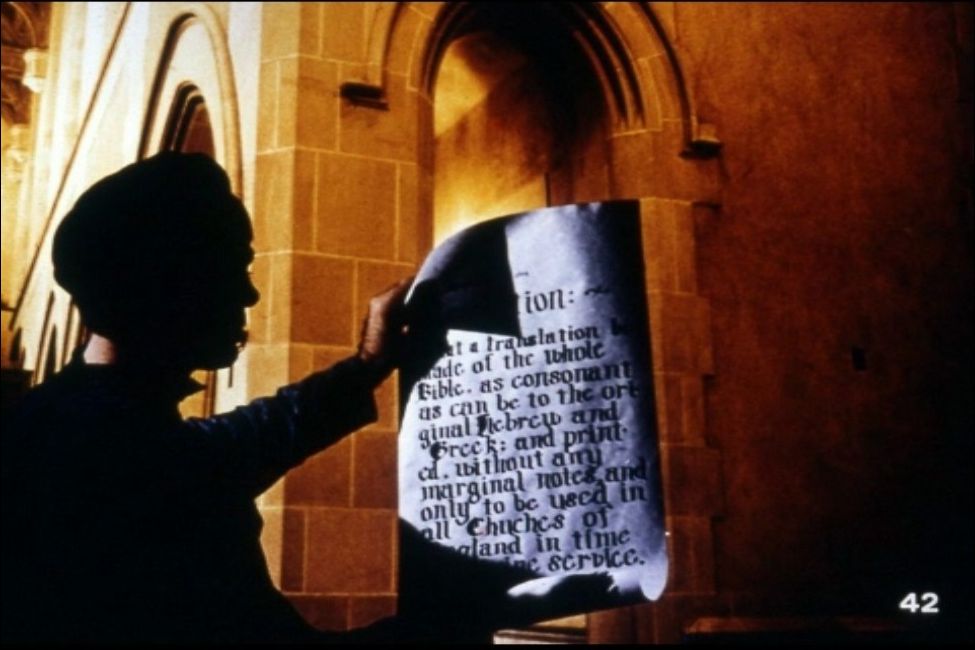 ion:
at a translation b
ade of the whole
Bible. as consonant
as can be to the ori
ginal Hebrew and
Greek; and print-
ed. without any
marginal notes and
only to be used in
all Chuches of
gland in time
ine service.
42